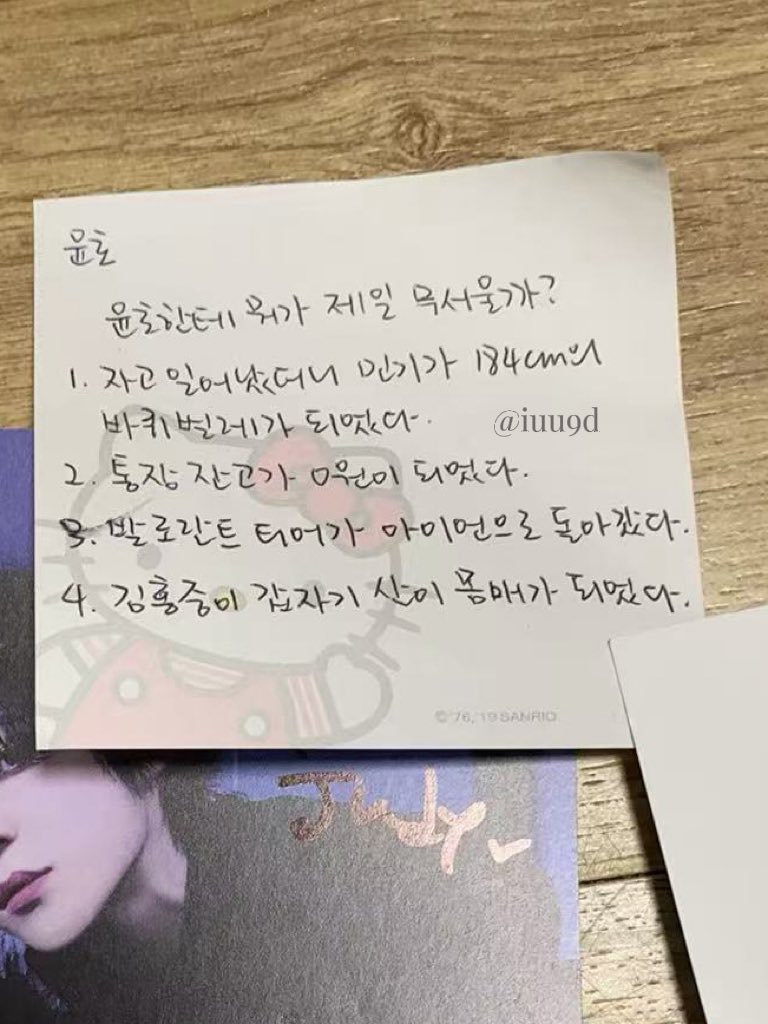 윤호
윤호한테 뭐가 제일 무서울까?
1. 자고 일어났더니 민기가 184cm의
바퀴벌레가 되었다.
@iuu9d
2. 통장 잔고가 0원이 되었다.
3. 발로란트 티어가 아이언으로 돌아갔다.
4. 김홍중이 갑자기 산이 몸매가 되었다.
©'76,'19 SANRIO
Judy